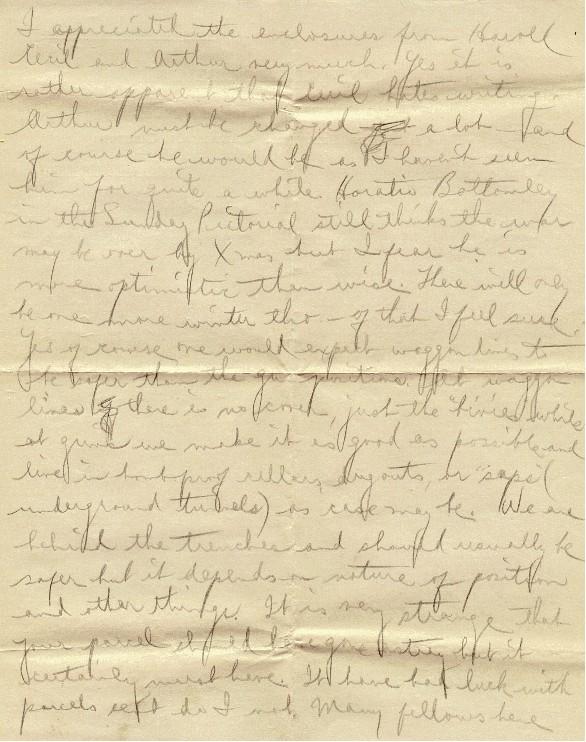 I appreciated the enclosures from Harold
Cecil and Arthur very much. Yes it is
rather apparent that Cecil hates writing.
Arthur must be changed a lot – and
of course he would be as I haven't seen
him for quite a while. Horatio Bottomley
in the Sunday Pictorial still thinks the war
may be over by Xmas but I fear he is
more optimistic than wise. There will only
be one more winter tho – of that I feel sure.
Yes of course one would expect waggon lines to
be safer than the gun positions. At waggon
lines there is no cover, just the bivies while
at guns we make it as good as possible and
live in bomb proof cellars, dugouts, or "saps" (
underground tunnels) as case may be. We are
behind the trenches and should usually be
safer but it depends on nature of position
and other things. It is very strange that
your parcel should have gone astray but it
certainly must have. I have bad luck with
parcels do I not. Many fellows here